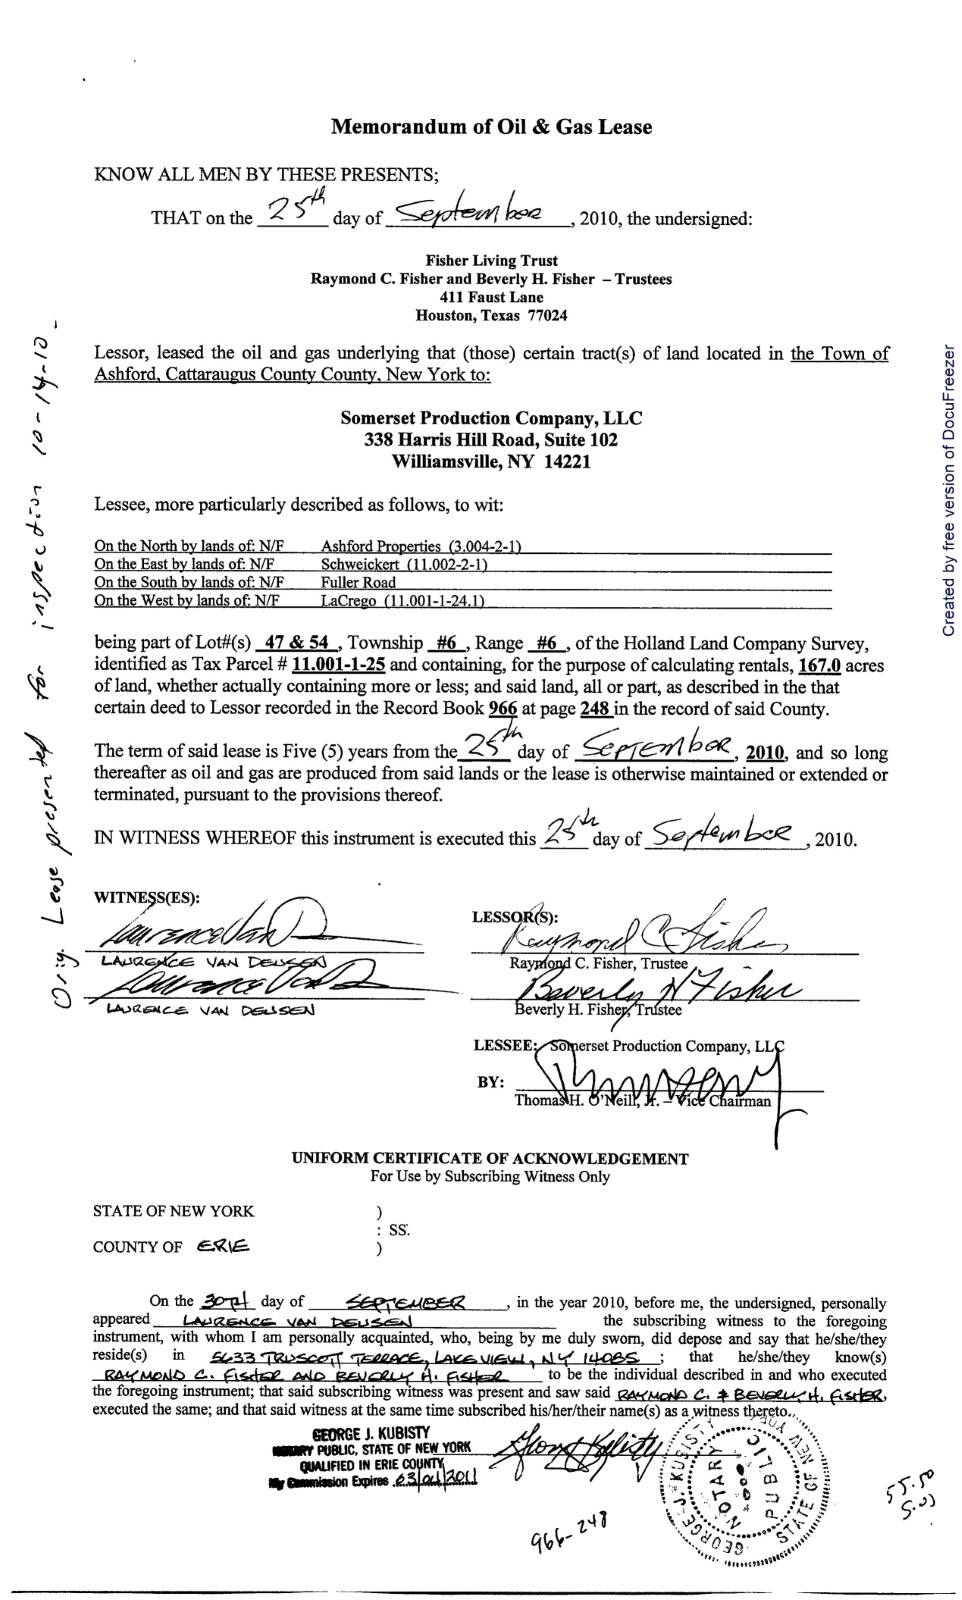 Memorandum of Oil & Gas Lease
KNOW ALL MEN BY THESE PRESENTS;
THAT on the 25th day of September, 2010, the undersigned:
Fisher Living Trust
Raymond C. Fisher and Beverly H. Fisher – Trustees
411 Faust Lane
Houston, Texas 77024
Lessor, leased the oil and gas underlying that (those) certain tract(s) of land located in the Town of
Ashford, Cattaraugus County County, New York to:
Somerset Production Company, LLC
338 Harris Hill Road, Suite 102
Williamsville, NY 14221
Lessee, more particularly described as follows, to wit:
On the North by lands of: N/F Ashford Properties (3.004-2-1)
On the East by lands of: N/F Schweickert (11.002-2-1)
On the South by lands of: N/F Fuller Road
On the West by lands of: N/F LaCrego (11.001-1-24.1)
being part of Lot#(s) 47 & 54 , Township #6 , Range #6 , of the Holland Land Company Survey,
identified as Tax Parcel # 11.001-1-25 and containing, for the purpose of calculating rentals, 167.0 acres
of land, whether actually containing more or less; and said land, all or part, as described in the that
certain deed to Lessor recorded in the Record Book 966 at page 248 in the record of said County.
The term of said lease is Five (5) years from the 25th day of September, 2010, and so long
thereafter as oil and gas are produced from said lands or the lease is otherwise maintained or extended or
terminated, pursuant to the provisions thereof.
IN WITNESS WHEREOF this instrument is executed this 25th day of September, 2010.
WITNESS(ES):
Laurence Van D
LAURENCE VAN DEUSEN
Laurence Van D
LAURENCE VAN DEUSEN
LESSOR(S):
Raymond C Fisher
Raymond C. Fisher, Trustee
Beverly H Fisher
Beverly H. Fisher, Trustee
LESSEE: Somerset Production Company, LLC
BY:
Thomas H. O'Neill, Jr. – Vice Chairman
UNIFORM CERTIFICATE OF ACKNOWLEDGEMENT
For Use by Subscribing Witness Only
STATE OF NEW YORK )
: SS.
COUNTY OF ERIE )
On the 30TH day of SEPTEMBER, in the year 2010, before me, the undersigned, personally
appeared LAURENCE VAN DEUSEN the subscribing witness to the foregoing
instrument, with whom I am personally acquainted, who, being by me duly sworn, did depose and say that he/she/they
reside(s) in 5633 TRUSCOTT TERRACE, LAKE VIEW, NY 14085 ; that he/she/they know(s)
RAYMOND C. FISHER AND BEVERLY H. FISHER to be the individual described in and who executed
the foregoing instrument; that said subscribing witness was present and saw said RAYMOND C. & BEVERLY H. FISHER,
executed the same; and that said witness at the same time subscribed his/her/their name(s) as a witness thereto.
GEORGE J. KUBISTY
NOTARY PUBLIC, STATE OF NEW YORK
QUALIFIED IN ERIE COUNTY
My Commission Expires 03/04/2011
George J Kubisty
GEORGE J. KUBISTY
NOTARY PUBLIC
STATE OF NEW YORK
966-248
55.50
5.00
Orig. Lease presented for inspection 10-14-10-
Created by free version of DocuFreezer